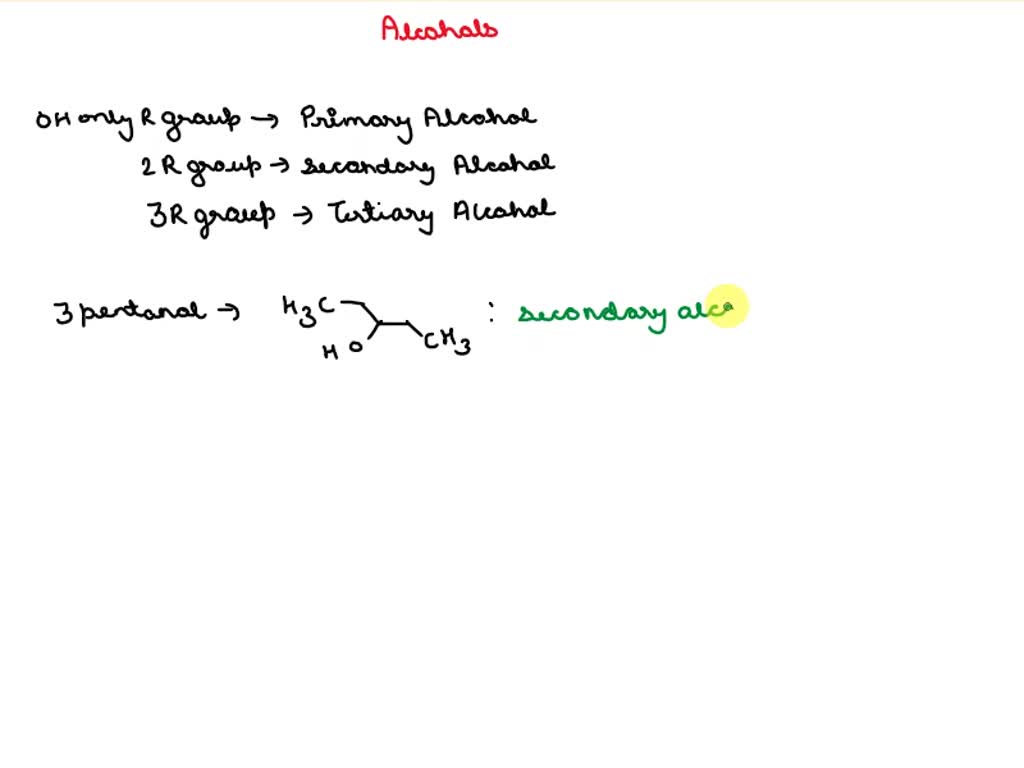 Alcohals
OH only R group → Primary Alcohol
2 R group → secondary Alcohal
3R group → Tertiary Alcohal
3 pentanol → H3C : secondary alco
HO CH3